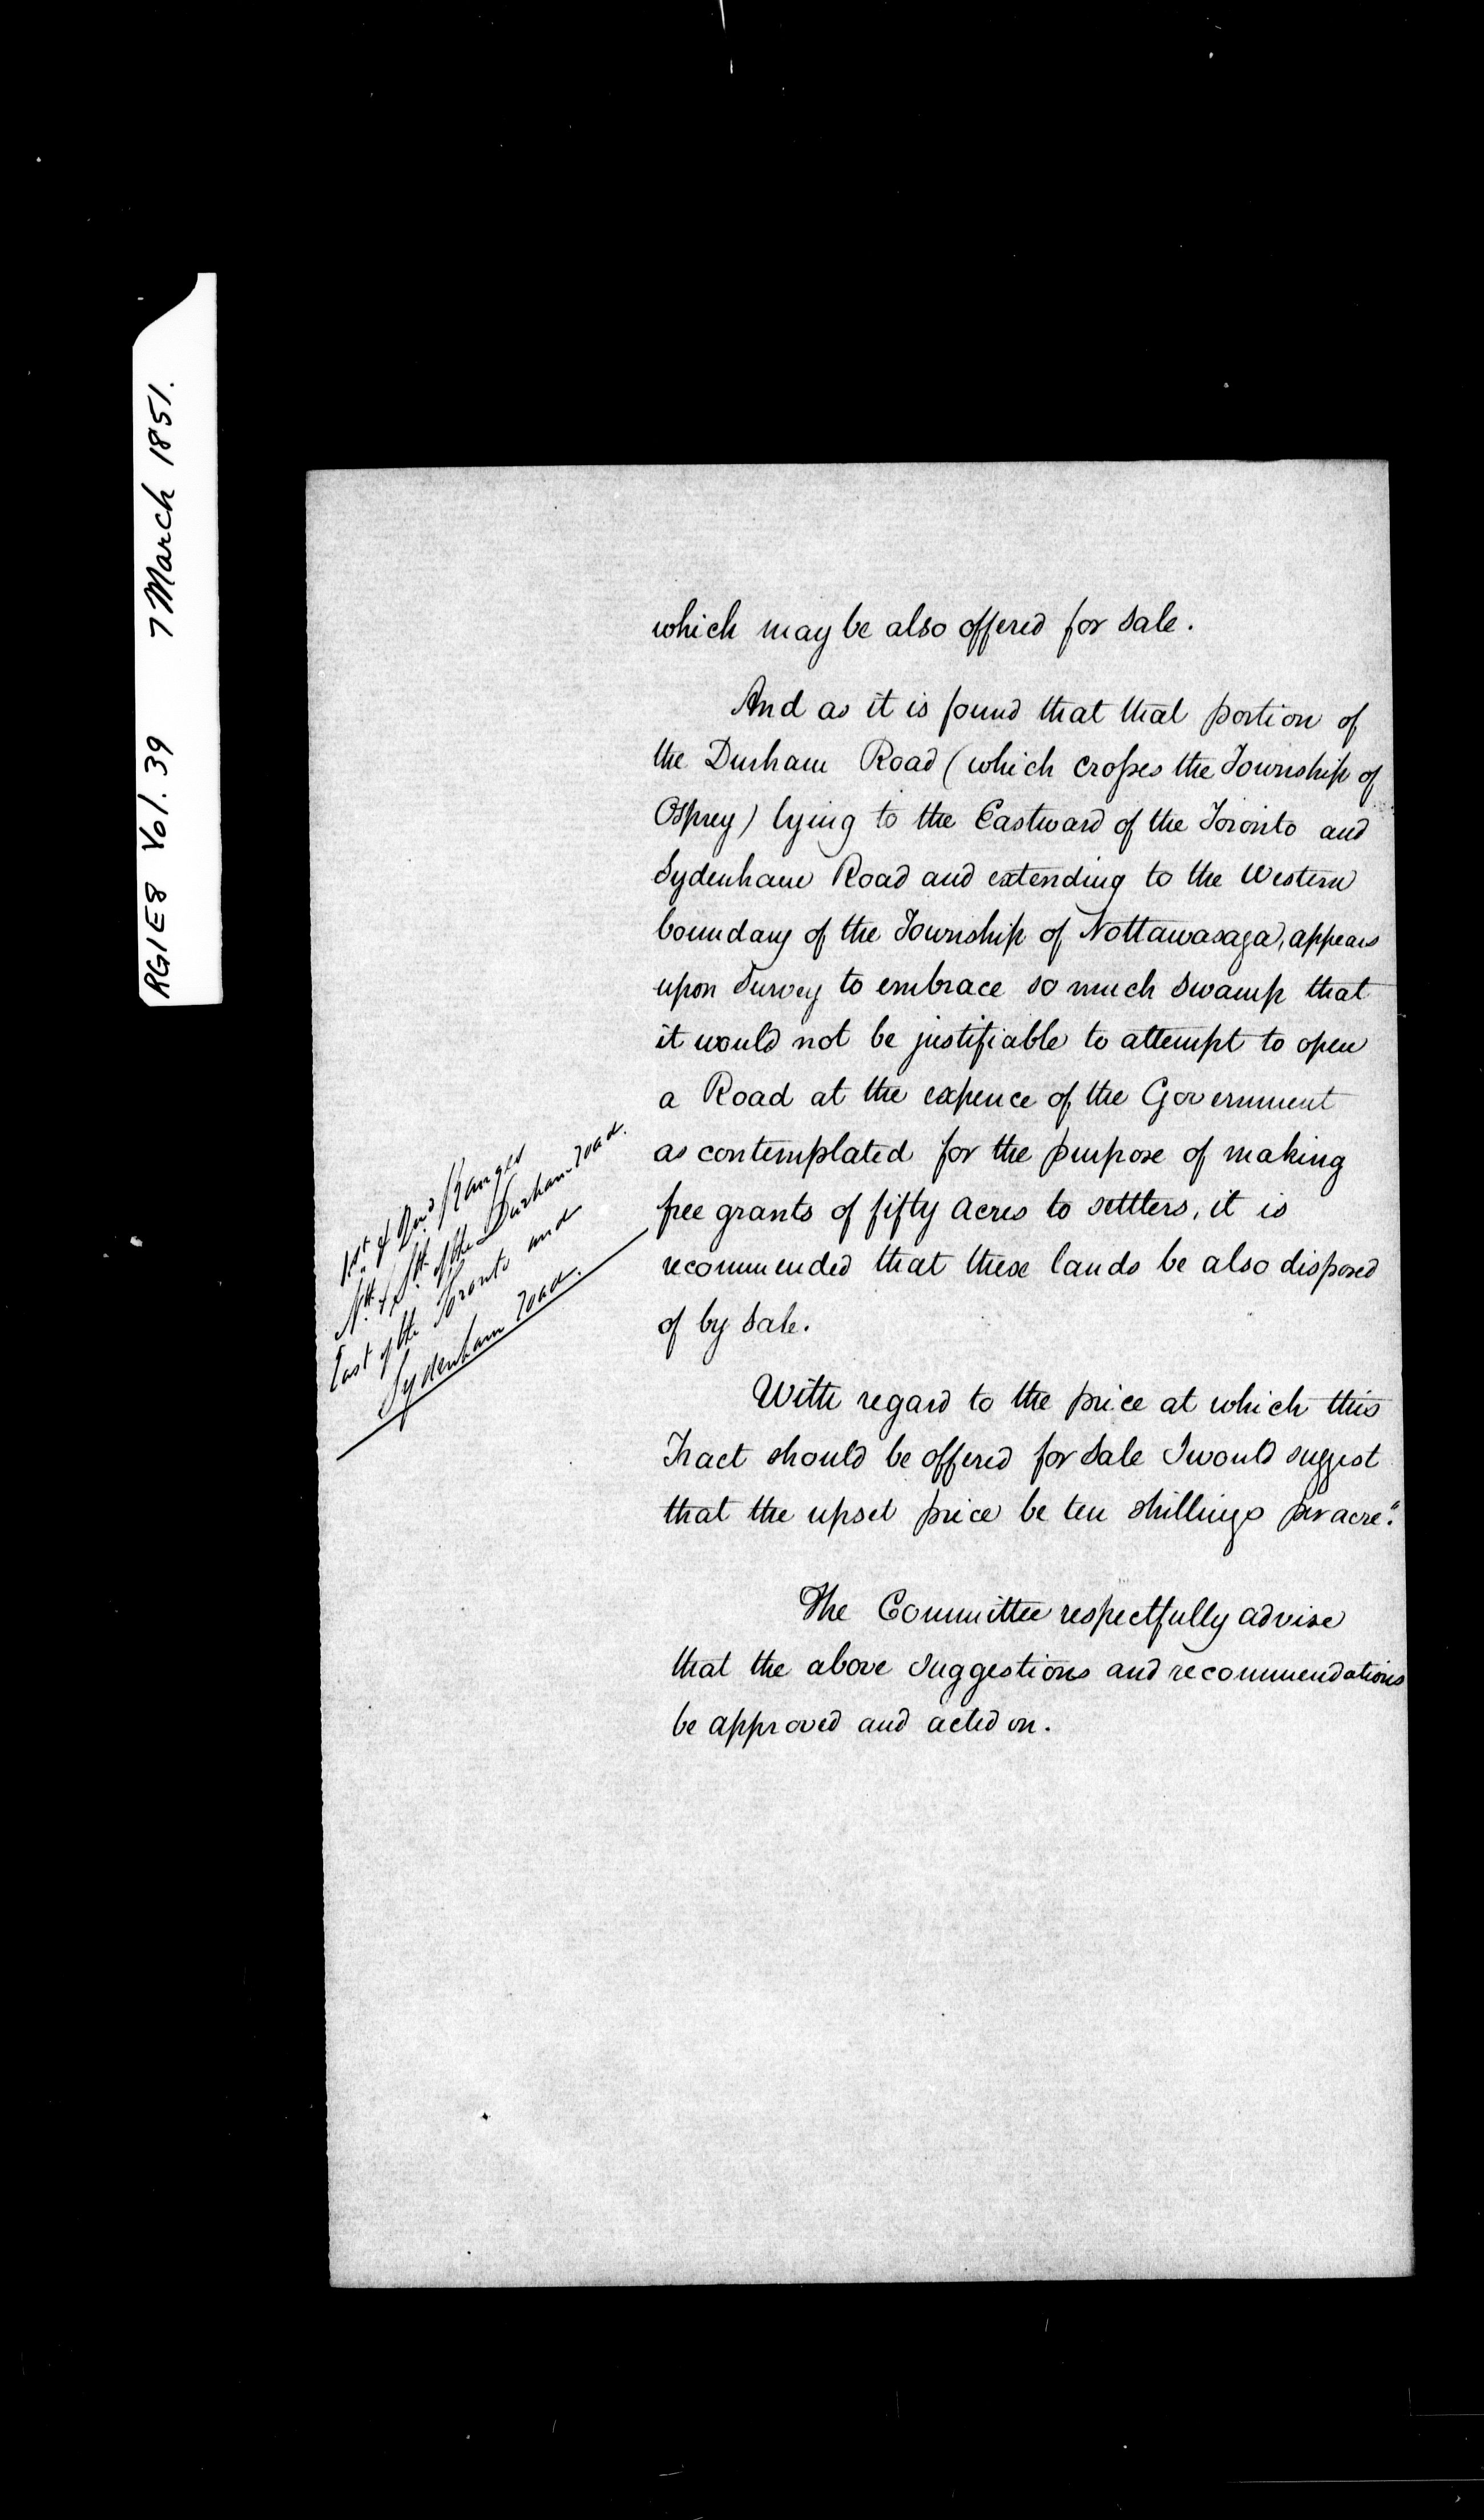 RG1E8 Vol. 39 7 March 1851.
which may be also offered for Sale.
And as it is found that that portion of
the Durham Road (which crosses the Township of
Osprey) lying to the Eastward of the Toronto and
Sydenham Road and extending to the Western
boundary of the Township of Nottawasaga, appears
upon Survey to embrace so much Swamp that
it would not be justifiable to attempt to open
a Road at the expence of the Government
as contemplated for the purpose of making
free grants of fifty acres to settlers, it is
recommended that these lands be also disposed
of by Sale.
With regard to the price at which this
Tract should be offered for Sale I would suggest
that the upset price be ten shillings per acre."
The Committee respectfully advise
that the above Suggestions and recommendations
be approved and acted on.
1st & 2nd Ranges
Nth & Sth of the Durham road.
East of the Toronto and
Sydenham road.